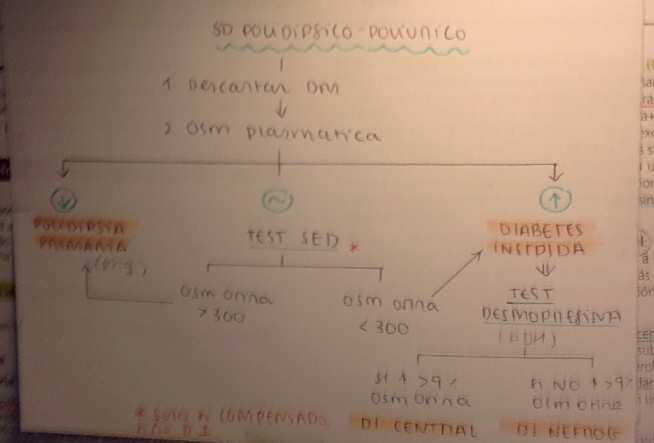 SD POLIDIPSICO-POLIURICO
1. Descartar DM
2. Osm plasmatica
↓
~
↑
POLIDIPSIA
PRIMARIA
(psig)
TEST SED *
DIABETES
INSIPIDA
Osm orina
>300
Osm orina
<300
TEST
DESMOPRESINA
(ADH)
si ↑ >9%
Osm orina
si NO ↑ >9%
Osm orina
DI CENTRAL
DI NEFROG
* solo si COMPENSADO